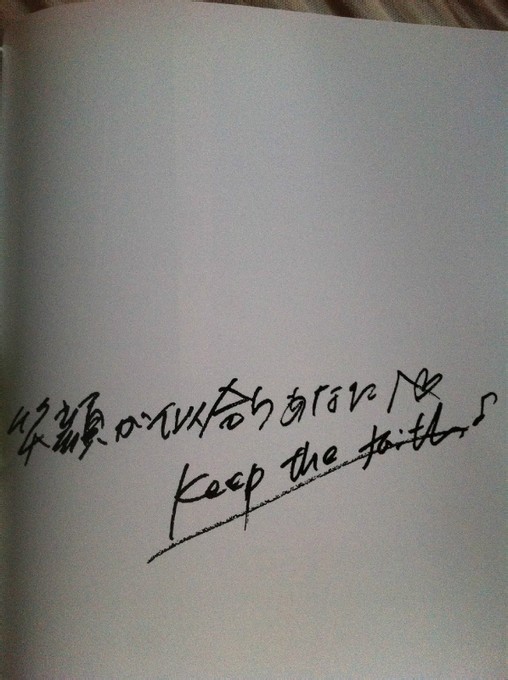 笑顔が似合うあなたへ♡
Keep the faith♪